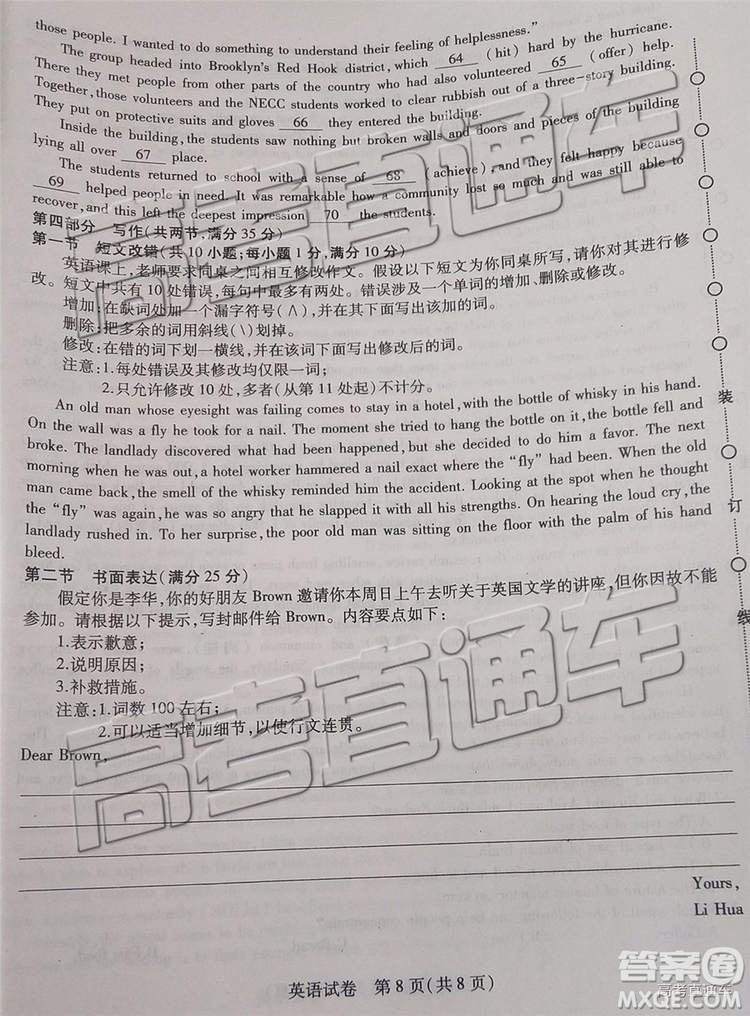 those people. I wanted to do something to understand their feeling of helplessness."
The group headed into Brooklyn's Red Hook district, which 64 (hit) hard by the hurricane.
There they met people from other parts of the country who had also volunteered 65 (offer) help.
Together, those volunteers and the NECC students worked to clear rubbish out of a three-story building.
They put on protective suits and gloves 66 they entered the building.
Inside the building, the students saw nothing but broken walls and doors and pieces of the building
lying all over 67 place.
The students returned to school with a sense of 68 (achieve), and they felt happy because
69 helped people in need. It was remarkable how a community lost so much and was still able to
recover, and this left the deepest impression 70 the students.
第四部分 写作(共两节,满分 35 分)
第一节 短文改错(共 10 小题;每小题 1 分,满分 10 分)
英语课上,老师要求同桌之间相互修改作文。假设以下短文为你同桌所写,请你对其进行修
改。短文中共有 10 处错误,每句中最多有两处。错误涉及一个单词的增加、删除或修改。
增加:在缺词处加一个漏字符号(∧),并在其下面写出该加的词。
删除:把多余的词用斜线(\)划掉。
修改:在错的词下划一横线,并在该词下面写出修改后的词。
注意:1.每处错误及其修改均仅限一词;
2.只允许修改 10 处,多者(从第 11 处起)不计分。
An old man whose eyesight was failing comes to stay in a hotel, with the bottle of whisky in his hand.
On the wall was a fly he took for a nail. The moment she tried to hang the bottle on it, the bottle fell and
broke. The landlady discovered what had been happened, but she decided to do him a favor. The next
morning when he was out, a hotel worker hammered a nail exact where the "fly" had been. When the old
man came back, the smell of the whisky reminded him the accident. Looking at the spot when he thought
the "fly" was again, he was so angry that he slapped it with all his strengths. On hearing the loud cry, the
landlady rushed in. To her surprise, the poor old man was sitting on the floor with the palm of his hand
bleed.
第二节 书面表达(满分 25 分)
假定你是李华,你的好朋友 Brown 邀请你本周日上午去听关于英国文学的讲座,但你因故不能
参加。请根据以下提示,写封邮件给 Brown。内容要点如下:
1.表示歉意;
2.说明原因;
3.补救措施。
注意:1.词数 100 左右;
2.可以适当增加细节,以使行文连贯。
Dear Brown,
Yours,
Li Hua
英语试卷 第 8 页(共 8 页)
装
订
线
高考直通车
高考直通车
答案圈
高考直通车
MXQE.COM